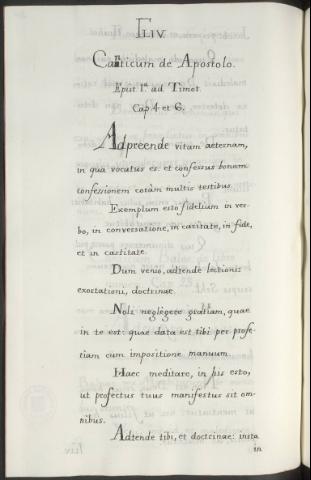 LIV.
Canticum de Apostolo.
Epist. 1ª. ad Timot.
Cap. 4 et 6.
Adpreende vitam aeternam,
in qua vocatus es. et confessus bonam
confessionem coràm multis testibus.
Exemplum esto fidelium in ver-
bo, in conversatione, in caritate, in fide,
et in castitate.
Dum venio, adtende lectionis
exortationi, doctrinae.
Noli neglegere gratiam, quae
in te est: quae data est tibi per profe-
tiam cum impositione manuum.
Haec meditare, in his esto,
ut profectus tuus manifestus sit om-
nibus.
Adtende tibi, et doctrinae: insta
in